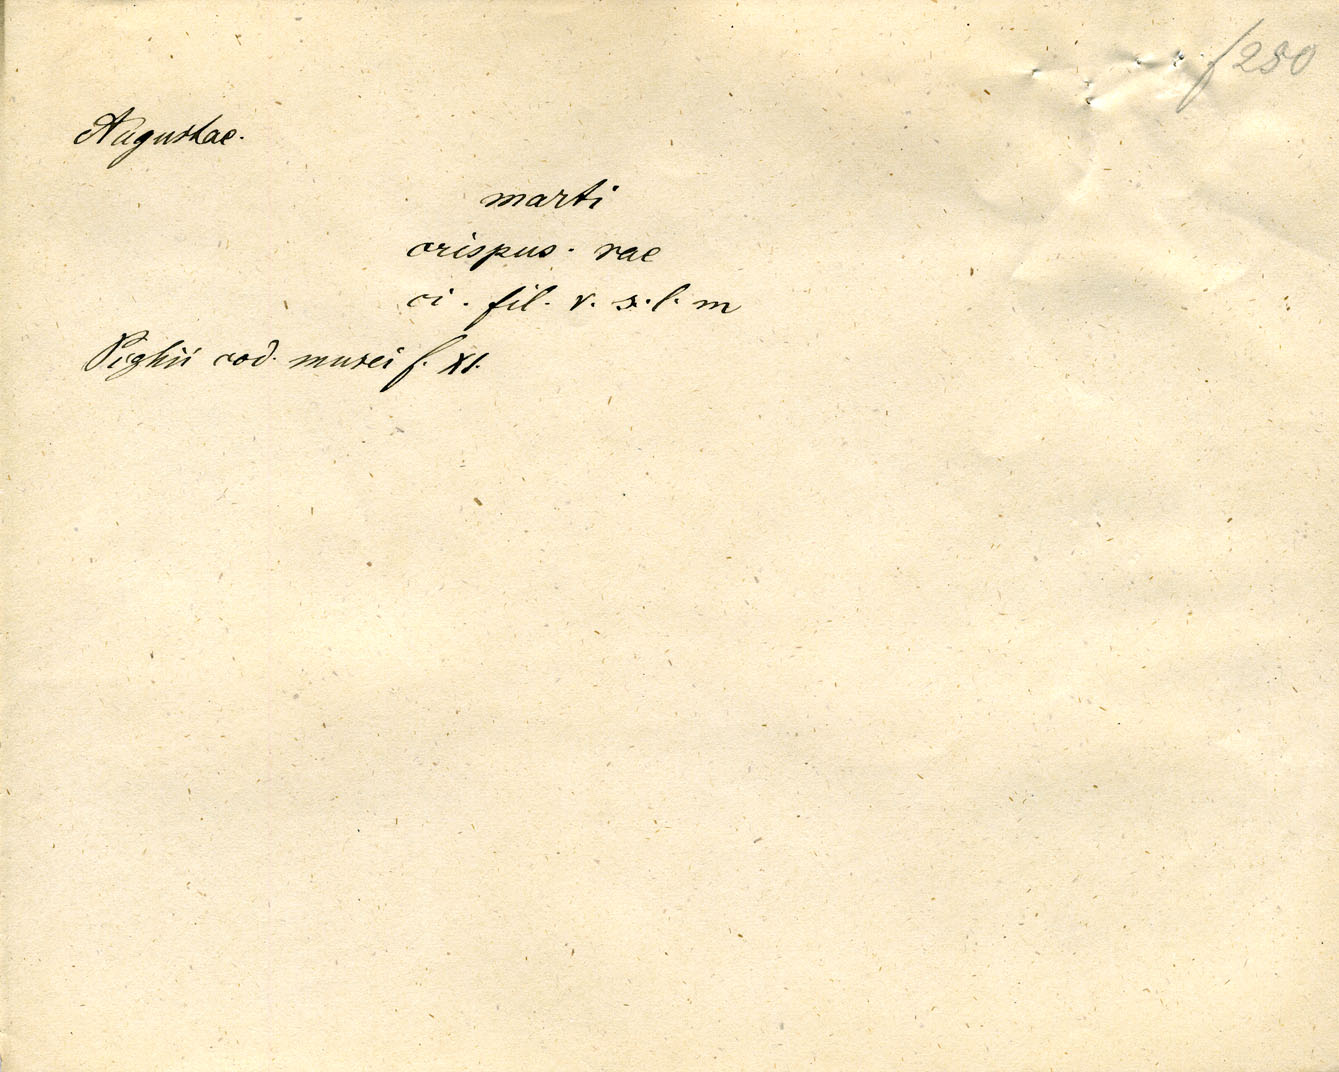 f 280
Augustae.
marti
crispus · rae
ci · fil · v · s · l · m
Pighii cod. musei f. XI.